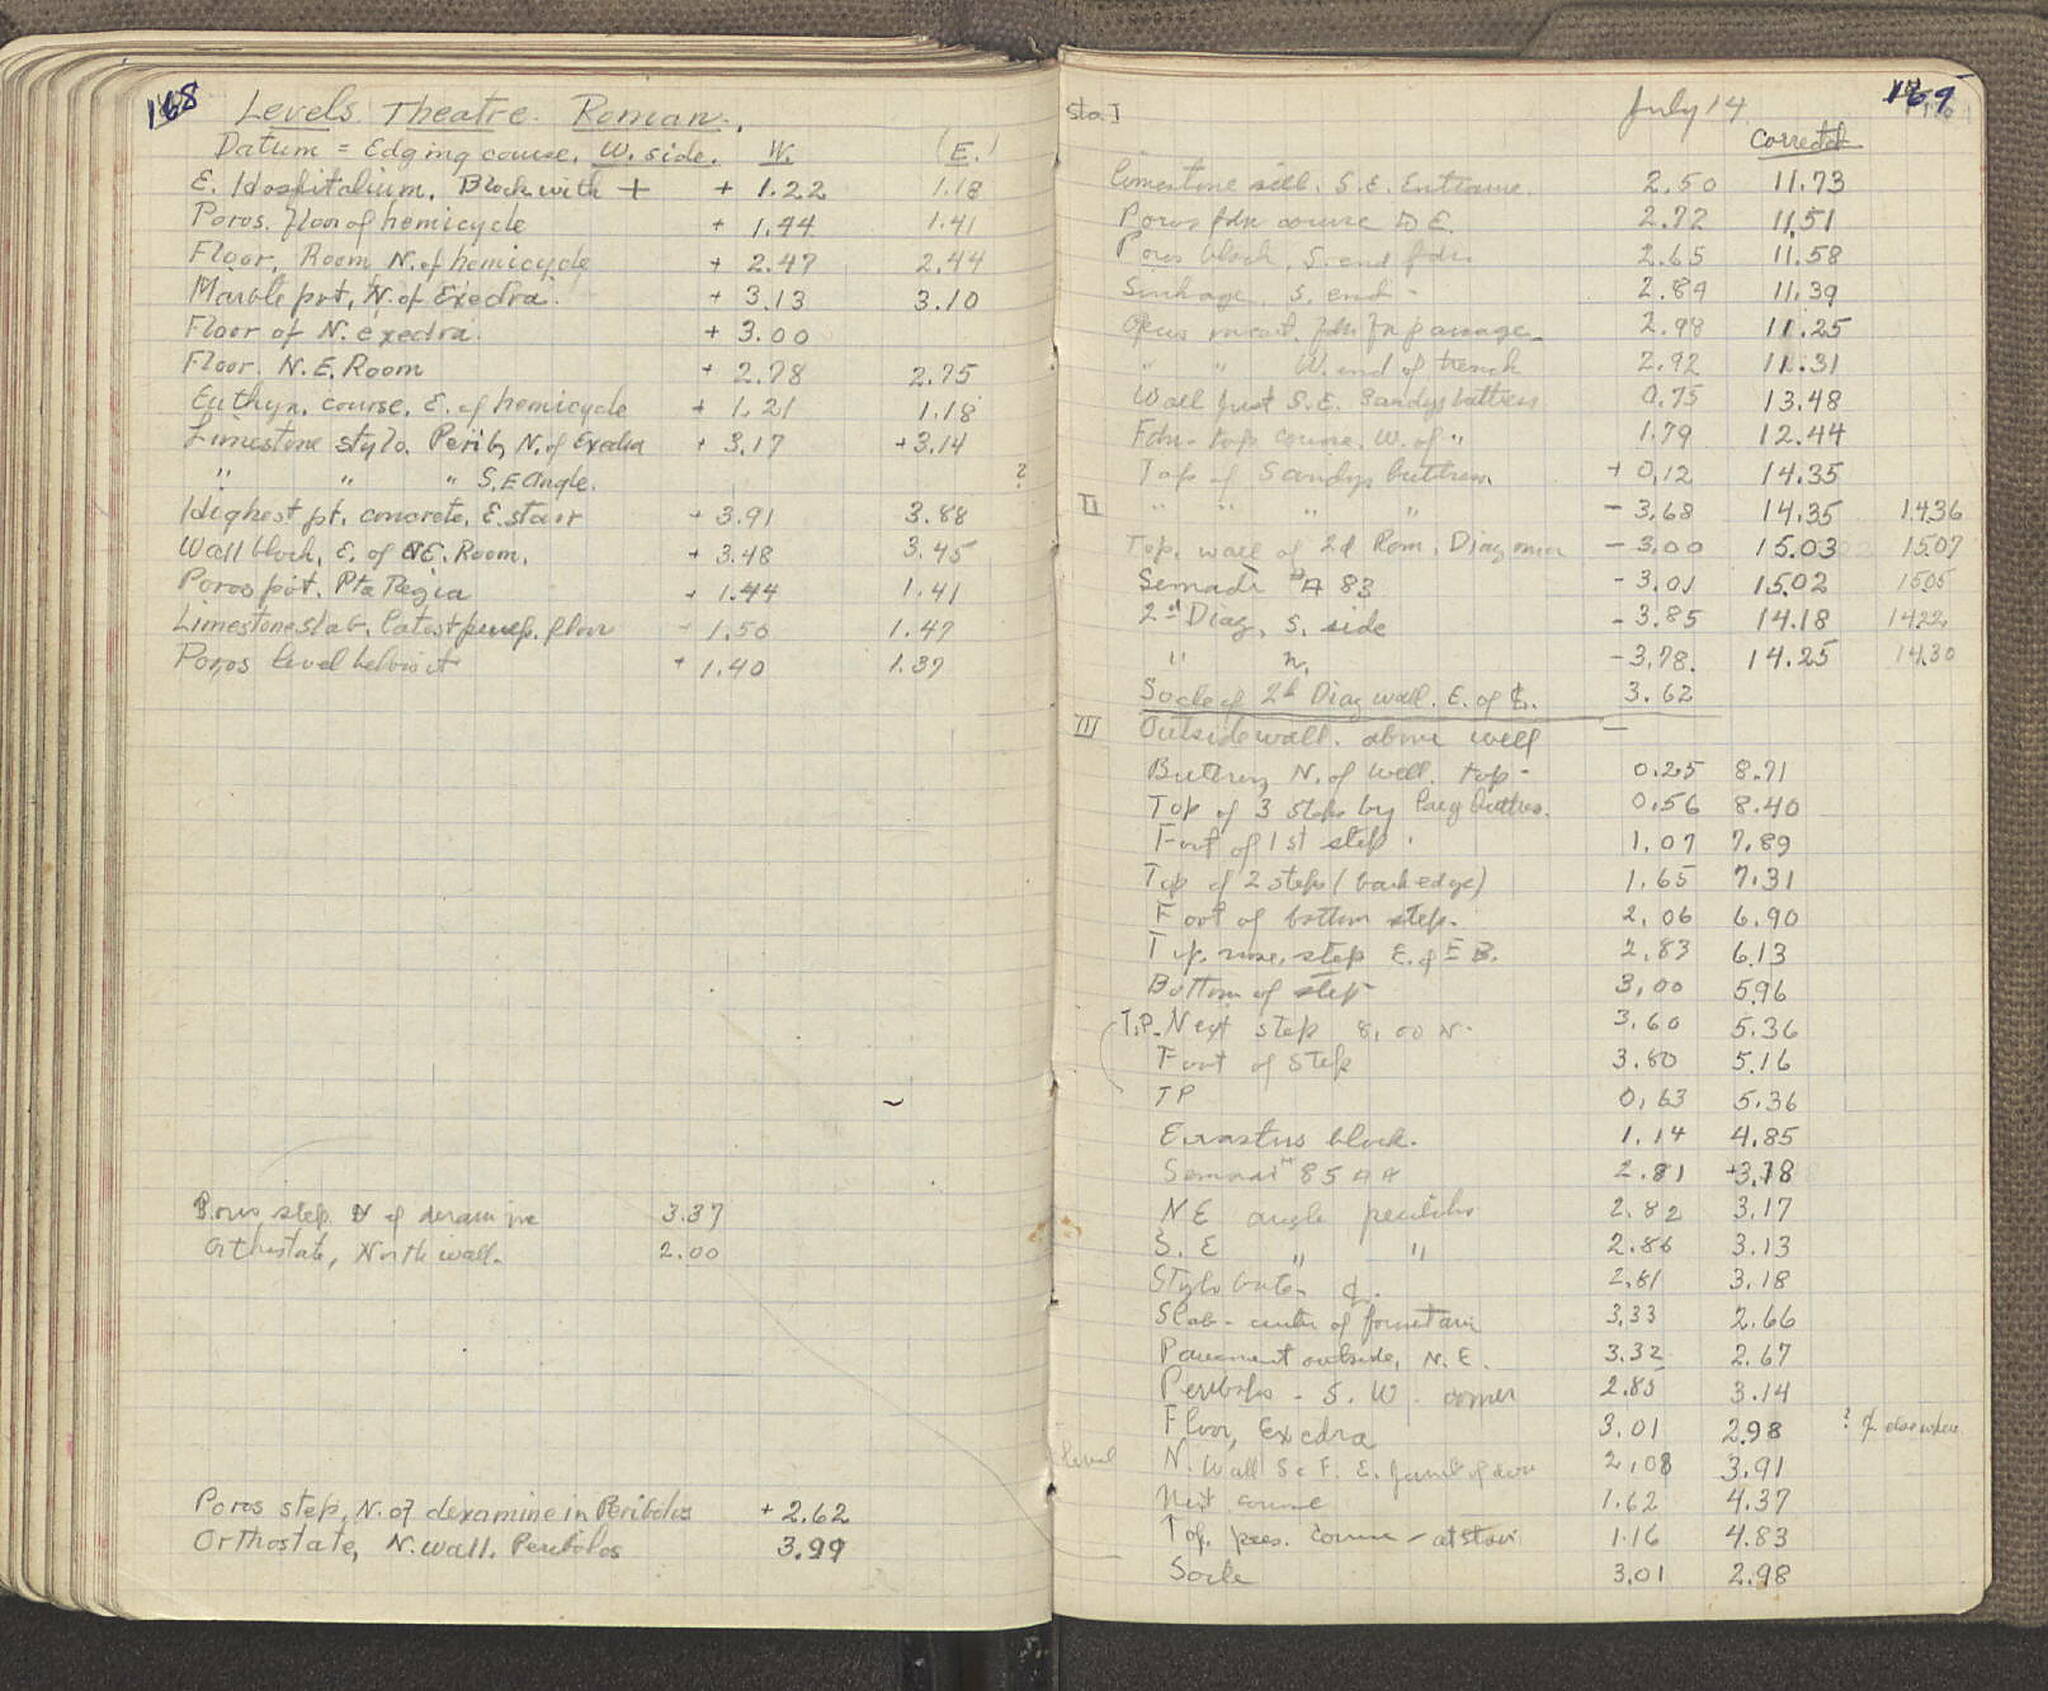 168
Levels Theatre. Roman.
Datum = Edging course. W. side. W. (E.)
E. Hospitalium. Block with + + 1.22 1.18
Poros. floor of hemicycle + 1.44 1.41
Floor, Room N. of hemicycle + 2.47 2.44
Marble pvt, N. of Exedra. + 3.13 3.10
Floor of N. exedra. + 3.00
Floor. N.E. Room + 2.78 2.75
Euthyn. course. E. of hemicycle + 1.21 1.18
Limestone stylo. Perib, N. of Exedra + 3.17 +3.14
" " " S.E Angle. ?
Highest pt. concrete, E. stair + 3.91 3.88
Wall block, E. of NE. Room. + 3.48 3.45
Poros pvt. Pta Regia + 1.44 1.41
Limestone slab. latest floor + 1.50 1.47
Poros level below it + 1.40 1.37
Poros step N of dexamine 3.37
Orthostate, North wall. 2.00
Poros step, N. of dexamine in Peribolos + 2.62
Orthostate, N. wall. Peribolos 3.99
169
Sta. I July 14
Corrected
limestone sill. S.E. Entrance. 2.50 11.73
Poros fdn course D E. 2.72 11.51
Poros block, S. end fdn 2.65 11.58
Sinkage, S. end - 2.84 11.39
Opus incert. fdn fn passage 2.98 11.25
" " W. end of trench 2.92 11.31
Wall just S.E. Sandys buttress 0.75 13.48
Fdn - top course. W. of " 1.79 12.44
Top of Sandys buttress. + 0.12 14.35
II " " " " - 3.68 14.35 14.36
Top. wall of 2d Rom. Diazoma - 3.00 15.03 15.07
Semade # A 83 - 3.01 15.02 15.05
2nd Diaz. S. side - 3.85 14.18 14.22
" N. - 3.78. 14.25 14.30
Socle of 2d Diaz wall. E. of ℄. 3.62
III Outside wall. above well —
Buttress N. of well. top - 0.25 8.71
Top of 3 steps by Larg buttres. 0.56 8.40
Foot of 1st step. 1.07 7.89
Top of 2 steps (back edge) 1.65 7.31
Foot of bottom step. 2.06 6.90
Top. step E. of E B. 2.83 6.13
Bottom of step 3.00 5.96
T.P. Next step 8.00 N. 3.60 5.36
Foot of step 3.80 5.16
TP 0.63 5.36
Erastus block. 1.14 4.85
Semadi 85 A A 2.81 +3.18
NE angle peribolos 2.82 3.17
S. E " " 2.86 3.13
Stylobate. ℄. 2.81 3.18
Slab - center of fountain 3.33 2.66
Pavement outside, N.E. 3.32 2.67
Peribolos - S. W. corner 2.85 3.14
Floor, Exedra 3.01 2.98 ? cf. elsewhere
level N. Wall S. F. E. jamb of door 2.08 3.91
Next course 1.62 4.37
Top. pres. course - at stair 1.16 4.83
Socle 3.01 2.98